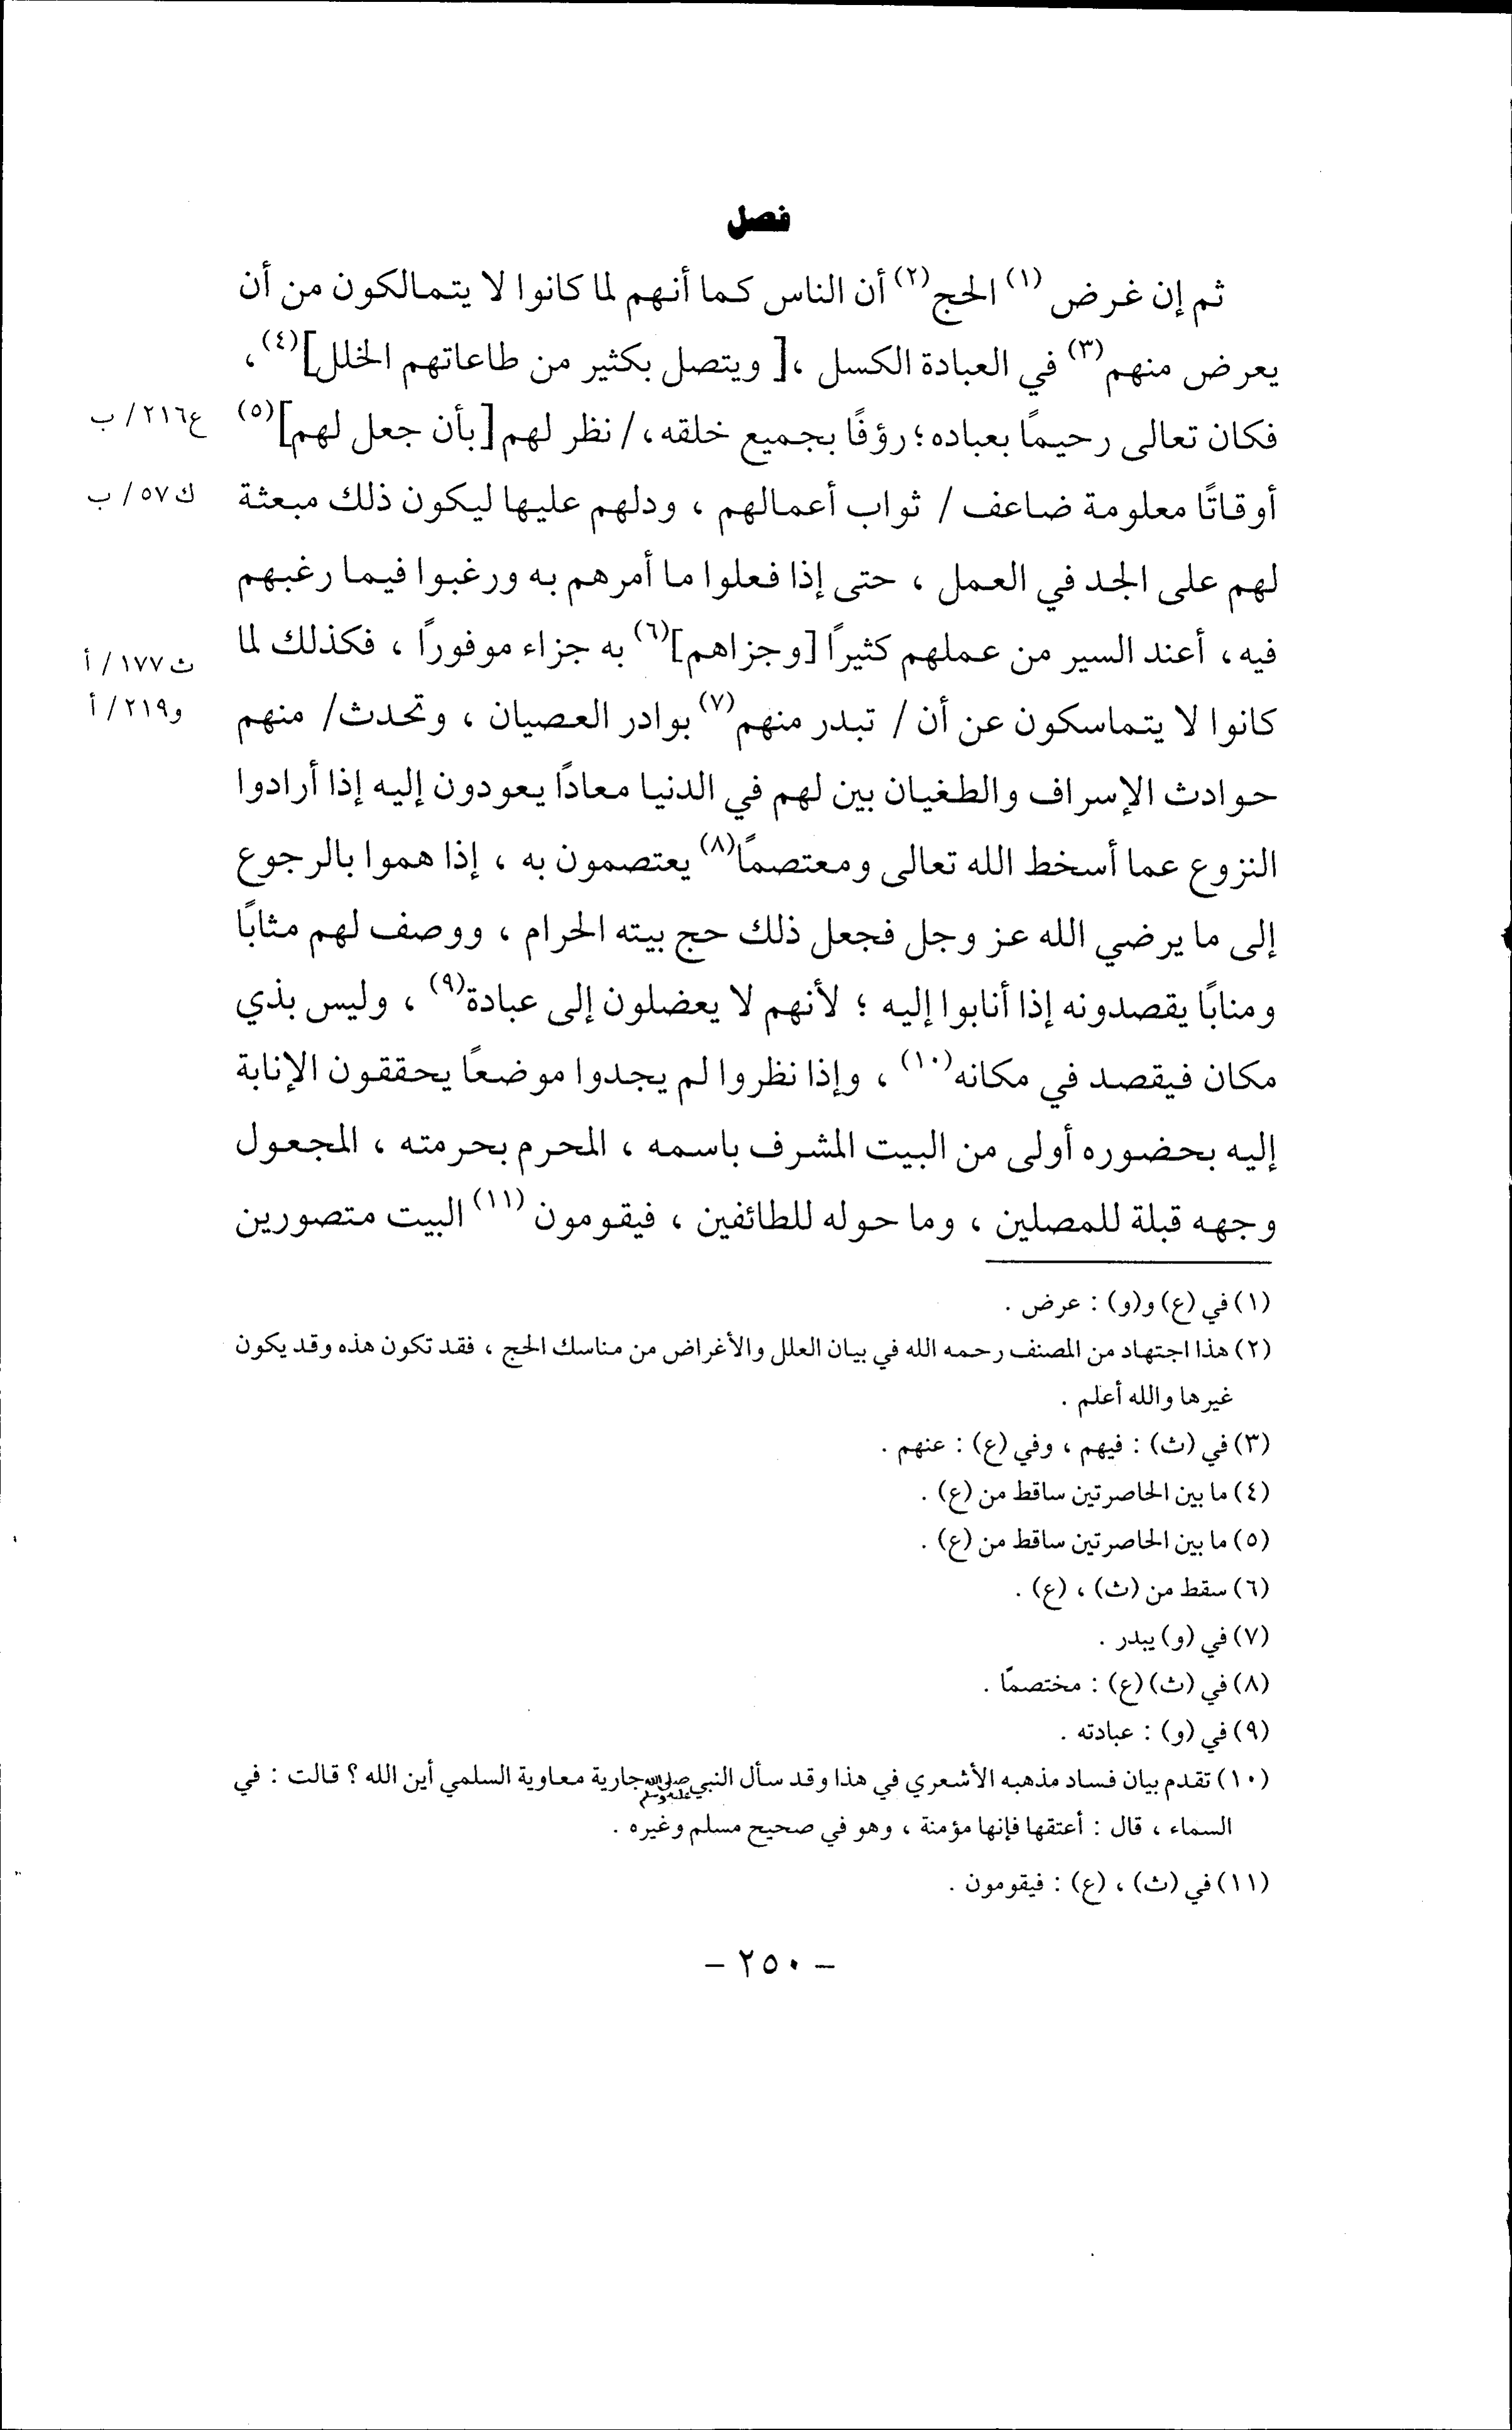 فصل
ثم إن غرض (١) الحج(٢) أن الناس كما أنهم لما كانوا لا يتمالكون من أن
يعرض منهم(٣) في العبادة الكسل ،[ ويتصل بكثير من طاعاتهم الخلل](٤)،
فكان تعالى رحيمًا بعباده؛ رؤفًا بجميع خلقه، / نظر لهم [بأن جعل لهم](٥)
ع٢١٦/ ب
أوقاتًا معلومة ضاعف / ثواب أعمالهم ، ودلهم عليها ليكون ذلك مبعثة
ك٥٧/ ب
لهم على الجد في العمل ، حتى إذا فعلوا ما أمرهم به ورغبوا فيما رغبهم
فيه، أعند السير من عملهم كثيرًا [وجزاهم](٦) به جزاء موفورًا ، فكذلك لما
ث١٧٧/ أ
كانوا لا يتماسكون عن أن / تبدر منهم(٧) بوادر العصيان ، وتحدث/ منهم
و٢١٩/ أ
حوادث الإسراف والطغيان بين لهم في الدنيا معادًا يعودون إليه إذا أرادوا
النزوع عما أسخط الله تعالى ومعتصمًا(٨) يعتصمون به ، إذا هموا بالرجوع
إلى ما يرضي الله عز وجل فجعل ذلك حج بيته الحرام ، ووصف لهم مثابًا
ومنابًا يقصدونه إذا أنابوا إليه ؛ لأنهم لا يعضلون إلى عبادة(٩) ، وليس بذي
مكان فيقصد في مكانه(١٠) ، وإذا نظروا لم يجدوا موضعًا يحققون الإنابة
إليه بحضوره أولى من البيت المشرف باسمه ، المحرم بحرمته ، المجعول
وجهه قبلة للمصلين ، وما حوله للطائفين ، فيقومون (١١) البيت متصورين
(١) في (ع) و(و) : عرض .
(٢) هذا اجتهاد من المصنف رحمه الله في بيان العلل والأغراض من مناسك الحج ، فقد تكون هذه وقد يكون
غيرها والله أعلم .
(٣) في (ث) : فيهم ، وفي (ع) : عنهم .
(٤) ما بين الحاصرتين ساقط من (ع) .
(٥) ما بين الحاصرتين ساقط من (ع) .
(٦) سقط من (ث) ، (ع) .
(٧) في (و) يبدر .
(٨) في (ث) (ع) : مختصمًا .
(٩) في (و) : عبادته .
(١٠) تقدم بيان فساد مذهبه الأشعري في هذا وقد سأل النبي ﷺ جارية معاوية السلمي أين الله ؟ قالت : في
السماء ، قال : أعتقها فإنها مؤمنة ، وهو في صحيح مسلم وغيره .
(١١) في (ث) ، (ع) : فيقومون .
– ٢٥٠ –